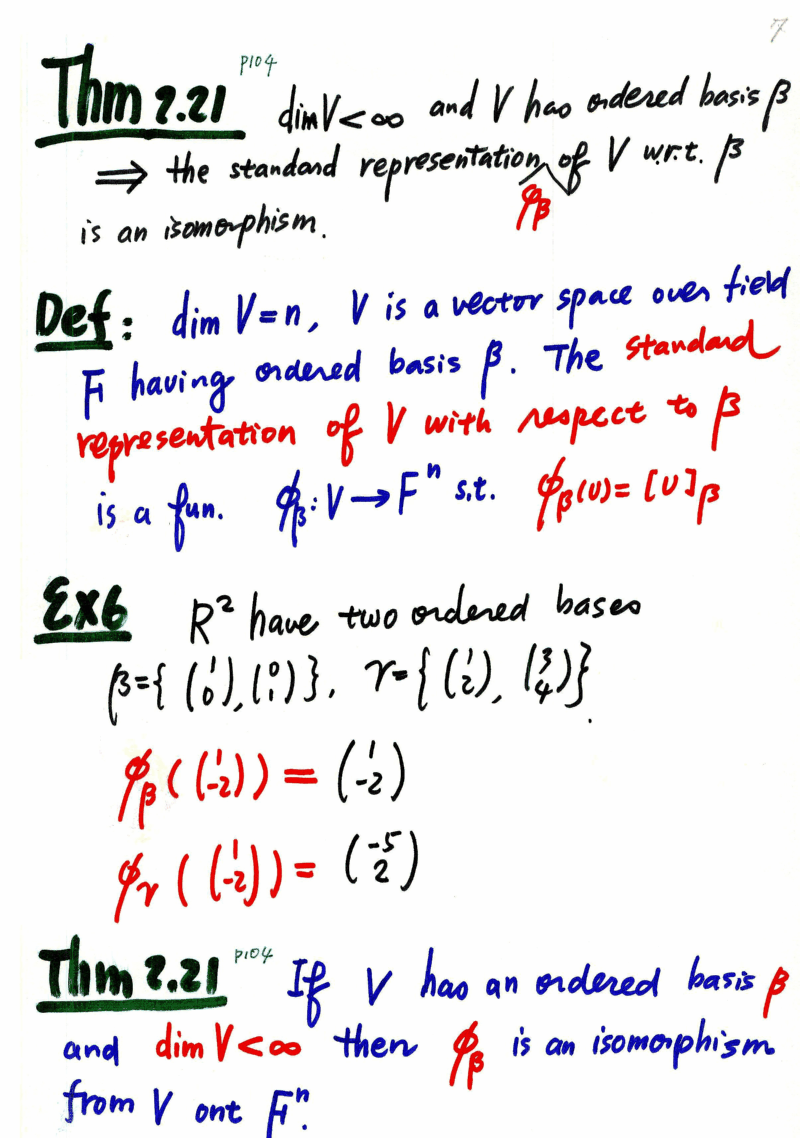 7
Thm 2.21 p104 dim V < ∞ and V has ordered basis β
⟹ the standard representation of V w.r.t. β
φ_β
is an isomorphism.
Def: dim V = n, V is a vector space over field
F having ordered basis β. The standard
representation of V with respect to β
is a fun. φ_β : V → F^n s.t. φ_β(υ) = [υ]_β
Ex6 R² have two ordered bases
β = { (1 0), (0 1) }, γ = { (1 2), (3 4) }.
φ_β ( (1 -2) ) = (1 -2)
φ_γ ( (1 -2) ) = (-5 2)
Thm 2.21 p104 If V has an ordered basis β
and dim V < ∞ then φ_β is an isomorphism
from V ont F^n.